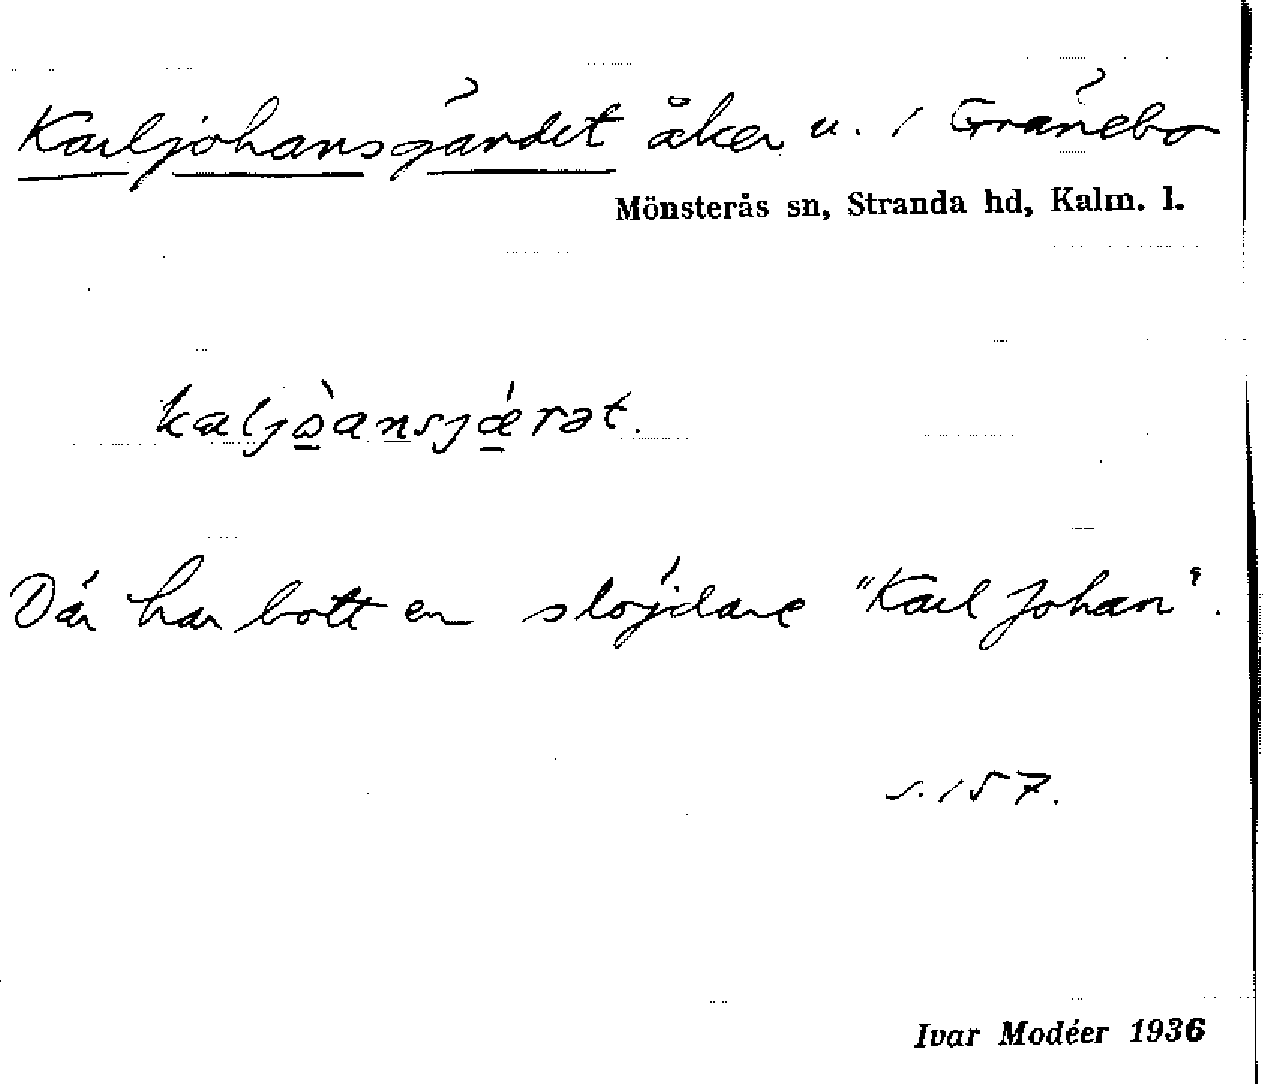 Karljohansgärdet åker u. / Gränebo
Mönsterås sn, Stranda hd, Kalm. l.
kaljòansjǽrət.
Där har bott en slöjdare "Karl Johan".
s. 157.
Ivar Modéer 1936